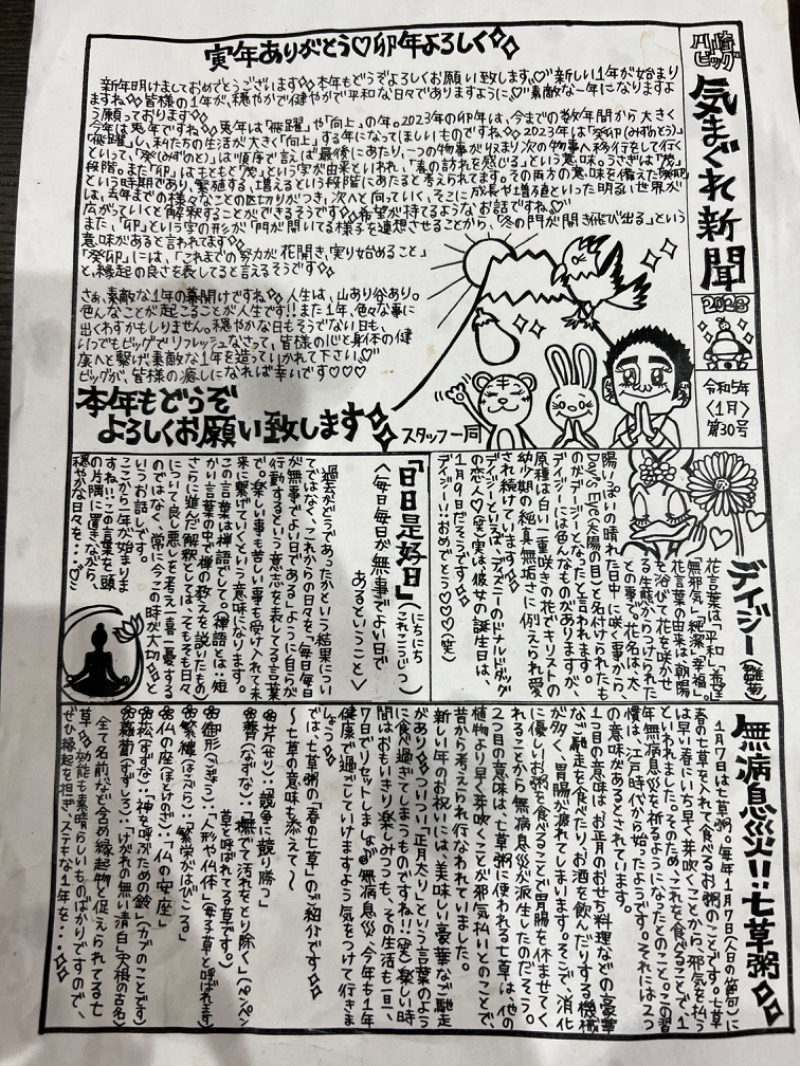 気まぐれ新聞
2023
令和5年
〈1月〉
第30号
寅年ありがとう♡卯年よろしく
新年明けましておめでとうございます 本年もどうぞよろしくお願い致します♡新しい1年が始まり
ますね 皆様の1年が、穏やかで健やかで平和な日々でありますように♡素敵な一年になりますよ
う願っております
今年は兎年ですね 兎年は「飛躍」や「向上」の年。2023年の卯年は、今までの数年間から大きく
「飛躍」し、私たちの生活が大きく「向上」する年になってほしいものですね 2023年は「癸卯(みずのとう)」
といって、「癸(みずのと)」は順序で言えば最後にあたり、一つの物事が収まり次の物事へ移行をして行く
段階。また「卯」はもともと「茂」という字が由来といわれ、「春の訪れを感じる」という意味。うさぎは「茂」
という時期であり、繁殖する、増えるという段階にあたると考えられてます。その両方の意味を備えた癸卯
は、去年までの様々なことの区切りがつき、次へと向っていく、そこに成長や増殖といった明るい世界が
広がっていくと解釈することができるそうです 希望が持てるようなお話ですね♡
また、「卯」という字の形が「門が開いてる様子を連想させることから、「冬の門が開き飛び出る」という
意味があると言われてます
「癸卯」には、「これまでの努力が花開き、実り始めること」
と、縁起の良さを表してると言えるそうです
さぁ、素敵な1年の幕開けですね 人生は、山あり谷あり。
色んなことが起こることが人生です!!また1年、色々な事に
出くわすかもしりません。穏やかな日もそうでない日も、
いつでもビッグでリフレッシュなさって、皆様の心と身体の健
康へと繋げ、素敵な1年を造っていかれて下さい♡
ビッグが、皆様の癒しになれば幸いです♡♡♡
本年もどうぞ
よろしくお願い致します
スタッフ一同
デイジー(雛菊)
花言葉は、「平和」「希望」
「無邪気」「純潔」「幸福」。
花言葉の由来は、朝陽
を浴びて花を咲かせ
る生態からつけられた
との事で。花名は、太
陽いっぱいの晴れた日中に咲く事から、
Day's Eye(太陽の目)と名付けられたも
のがデージーとなったと言われます。
デイジーには色んなものがありますが、
原種は白い一重咲きの花でキリストの
幼少期の純真無垢さに例えられ愛
され続けています
デイジーといえば、ディズニーのドナルドダック
の恋人♡(笑)実は彼女の誕生日は、
1月9日だそうです
デイジー!!おめでとう♡♡♡(笑)
「日日是好日」(にちにち
これこうじつ)
〈毎日毎日が無事でよい日で
あるということ〉
過去がどうであったかという結果につい
てではなく、これからの日々を「毎日毎日
が無事でよい日である」ように自らが
行動するという意志を表してる言葉
で。楽しい事も苦しい事も受け入れて未
来に繋げていくという意味になります。
この言葉は禅語として。禅語とは:短
かい言葉の中で禅の教えを説いたもの
さらに進んだ解釈としては、そもそも日々
について良し悪しを考え一喜一憂する
のではなく、常に今この時が大切 と
いうお話しです。
ここから一年が始まりま
すね!!この言葉を頭
の片隅に置きながら、
穏やかな日々を・・♡
無病息災!!七草粥
1月7日は七草粥。毎年1月7日(人日の節句)に
春の七草を入れて食べるお粥のことです。七草
は早い春にいち早く芽吹くことから、邪気を払う
といわれました。そのため、これを食べることで、1
年無病息災を祈るようになったとのこと。この習
慣は、江戸時代から始ったようです。それには2つ
の意味があるとされています。
1つ目の意味は、お正月のおせち料理などの豪華
なご馳走を食べたり、お酒を飲んだりする機械
が多く、胃腸が疲れてしまいます。そこで、消化
に優しいお粥を食べることで胃腸を休ませてく
れることから無病息災が派生したのだそう。
2つ目の意味は、七草粥に使われる七草は、他の
植物より早く芽吹くことが邪気払いとのことで、
昔から考えられ行なわれていました。
新しい年のお祝いには、美味しい豪華なご馳走
があり ついつい「正月太り」という言葉のよう
に食べ過ぎてしまうものですね!!(笑)楽しい時
間はおもいきり楽しみつつも、その生活も一旦、
7日でリセットしましょ 無病息災、今年も1年
健康で過ごしていけますよう気をつけて行きま
しょう
では、七草粥の「春の七草」のご紹介です
～七草の意味も添えて～
芹(せり):「競争に競り勝つ」
薺(なずな):「撫でて汚れをとり除く」(ペンペン
草と呼ばれてる草です。)
御形(ごぎょう):「人形や仏体」(母子草と呼ばれます)
繁縷(はこべら):「繁栄がはびこる」
仏の座(ほとけのざ):「仏の安座」
菘(すずな):「神を呼ぶための鈴」(カブのことです)
蘿蔔(すずしろ):「けがれの無い清白」(大根の古名)
全て名前など含め縁起物と促えられてる七
草 効能も素晴らしいものばかりですので、
ぜひ縁起を担ぎ、ステキな1年を・・・